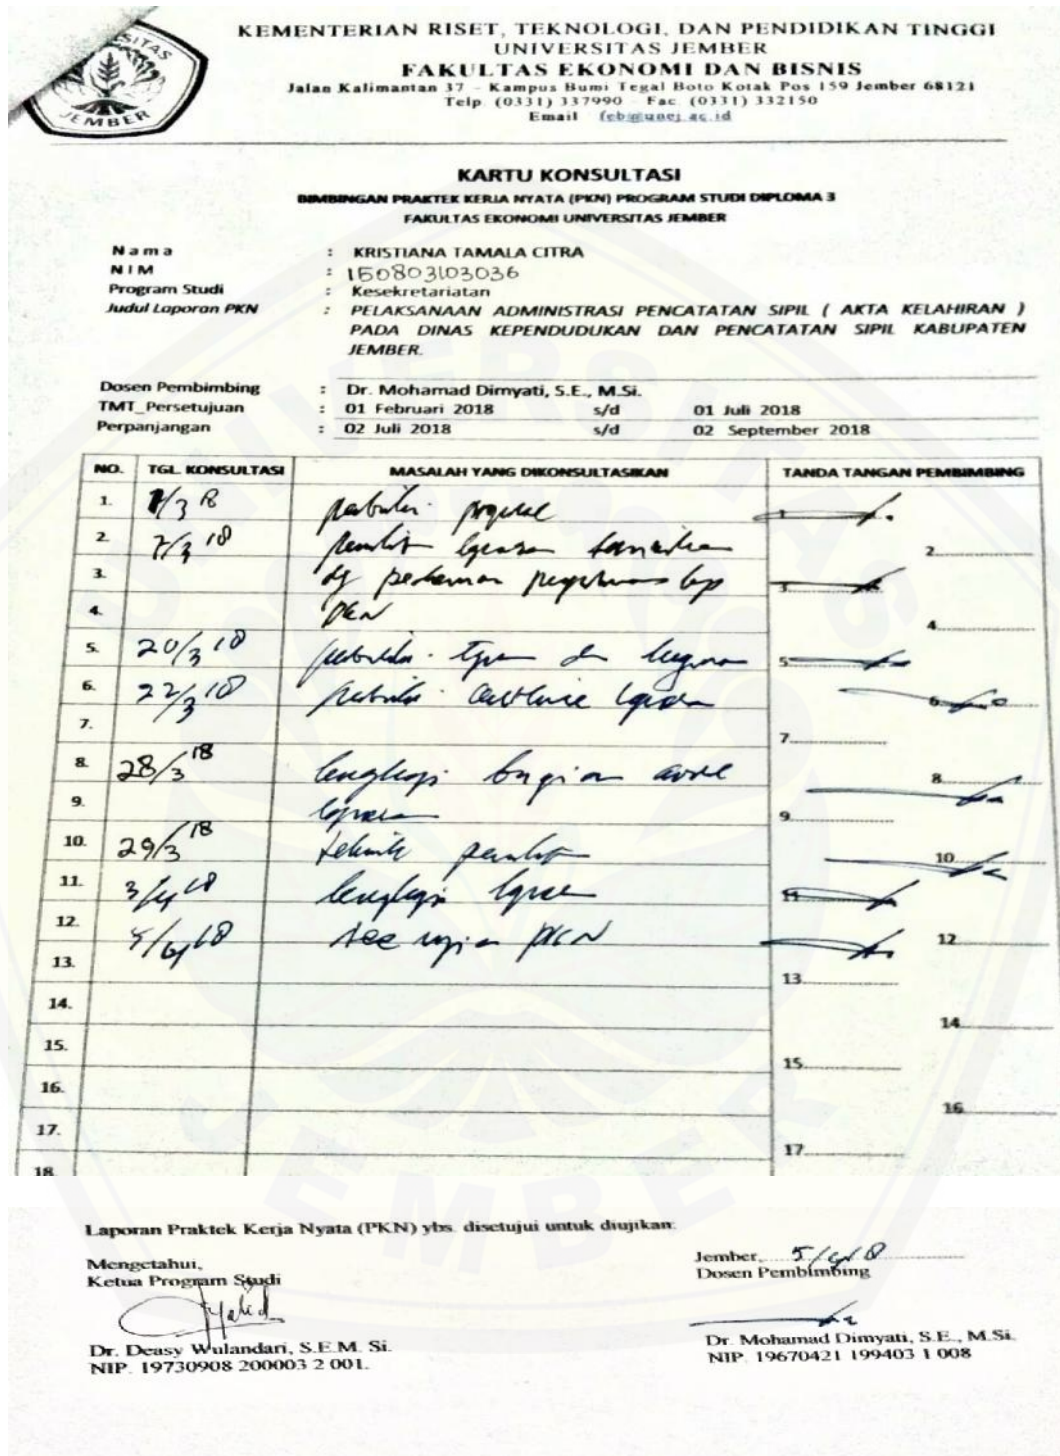 KEMENTERIAN RISET, TEKNOLOGI, DAN PENDIDIKAN TINGGI
UNIVERSITAS JEMBER
FAKULTAS EKONOMI DAN BISNIS
Jalan Kalimantan 37 - Kampus Bumi Tegal Boto Kotak Pos 159 Jember 68121
Telp. (0331) 337990 - Fac. (0331) 332150
Email feb@unej.ac.id
JEMBER
KARTU KONSULTASI
BIMBINGAN PRAKTEK KERJA NYATA (PKN) PROGRAM STUDI DIPLOMA 3
FAKULTAS EKONOMI UNIVERSITAS JEMBER
N a m a : KRISTIANA TAMALA CITRA
N I M : 150803103036
Program Studi : Kesekretariatan
Judul Laporan PKN : PELAKSANAAN ADMINISTRASI PENCATATAN SIPIL ( AKTA KELAHIRAN )
PADA DINAS KEPENDUDUKAN DAN PENCATATAN SIPIL KABUPATEN
JEMBER.
Dosen Pembimbing : Dr. Mohamad Dimyati, S.E., M.Si.
TMT_Persetujuan : 01 Februari 2018 s/d 01 Juli 2018
Perpanjangan : 02 Juli 2018 s/d 02 September 2018
NO. TGL. KONSULTASI MASALAH YANG DIKONSULTASIKAN TANDA TANGAN PEMBIMBING
1. 1/3 18 proposal 1
2. 7/3 18 2
3. dg pedoman 3
4. PKN 4
5. 20/3 18 5
6. 22/3 18 outline 6
7. 7
8. 28/3 18 lengkapi bagian awal 8
9. laporan 9
10. 29/3 18 teknik 10
11. 3/4 18 lengkapi 11
12. ACC ujian PKN 12
13. 13
14. 14
15. 15
16. 16
17. 17
18.
Laporan Praktek Kerja Nyata (PKN) ybs. disetujui untuk diujikan:
Mengetahui,
Ketua Program Studi
Dr. Deasy Wulandari, S.E.M. Si.
NIP. 19730908 200003 2 001.
Jember,
Dosen Pembimbing
Dr. Mohamad Dimyati, S.E., M.Si.
NIP. 19670421 199403 1 008